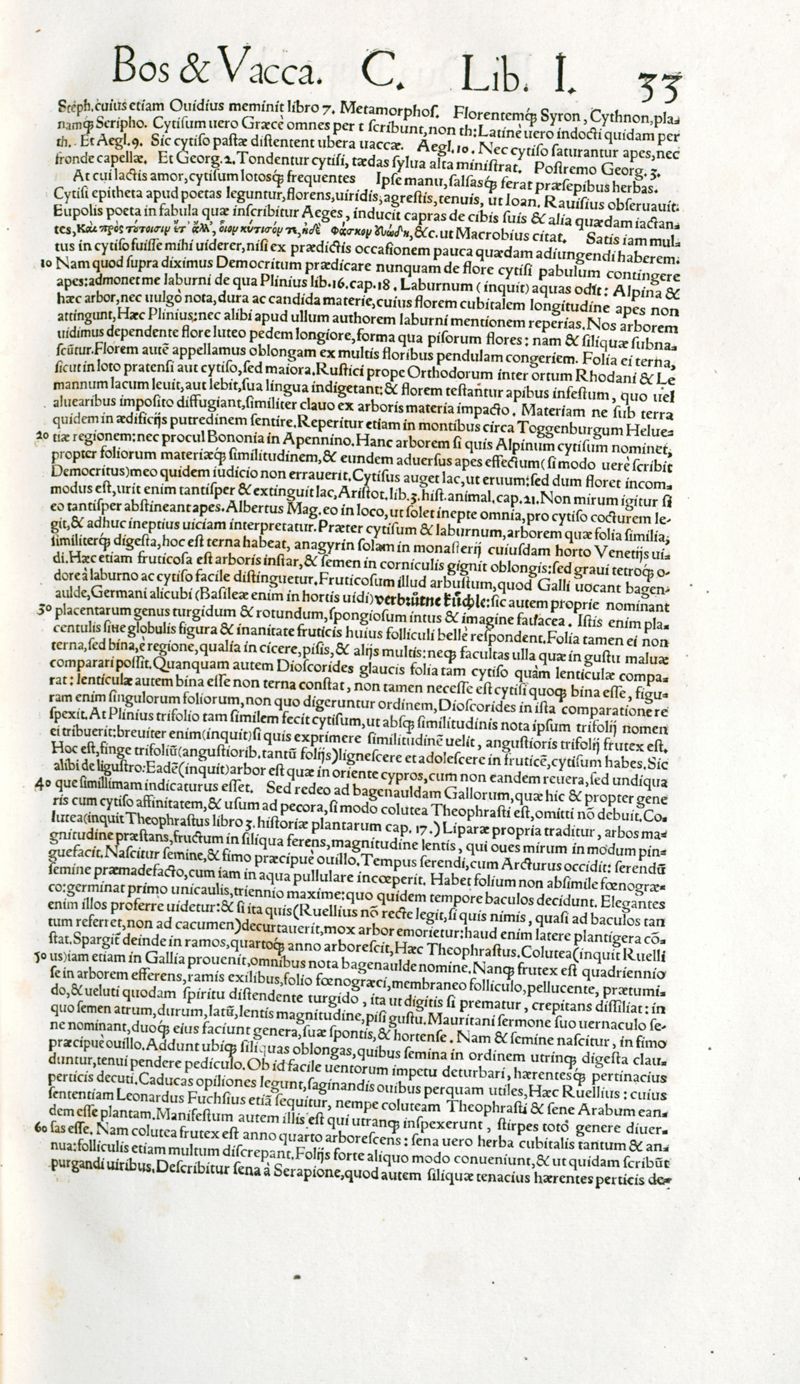 Bos & Vacca. C. Lib. I. 33
Steph. cuius etiam Ouidius meminit libro 7. Metamorphoſ. Florentemq́; Syron, Cythnon, pla-
namq́; Scripho. Cytiſum uero Græcè omnes per t ſcribunt, non th: Latinè uero indocti quidam per
th. Et Aegl. 9. Sic cytiſo paſtæ diſtentent ubera uaccæ. Aegl. 10. Nec cytiſo ſaturantur apes, nec
fronde capellæ. Et Georg. 2. Tondentur cytiſi, tædas ſylua alta miniſtrat. Poſtremo Georg. 3.
At cui lactis amor, cytiſum lotosq́; frequentes Ipſe manu, ſalſasq́; ferat præſepibus herbas.
Cytiſi epitheta apud poetas leguntur, florens, uiridis, agreſtis, tenuis, ut Ioan. Rauiſius obſeruauit.
Eupolis poeta in fabula quæ inſcribitur Aeges, inducit capras de cibis ſuis & alia quædam iactan-
tes, &c. ut Macrobius citat. Satis iam mul-
tus in cytiſo fuiſſe mihi uiderer, niſi ex prædictis occaſionem pauca quædam adiungendi haberem.
10 Nam quod ſupra diximus Democritum prædicare nunquam de flore cytiſi pabulum contingere
apes: admonet me laburni de qua Plinius lib. 16. cap. 18. Laburnum (inquit) aquas odit: Alpina &
hæc arbor, nec uulgò nota, dura ac candida materie, cuius florem cubitalem longitudine apes non
attingunt, Hæc Plinius: nec alibi apud ullum authorem laburni mentionem reperias. Nos arborem
uidimus dependente flore luteo pedem longiore, forma qua piſorum flores: nam & ſiliquæ ſubna-
ſcūtur. Florem autē appellamus oblongam ex multis floribus pendulam congeriem. Folia ei terna,
ſicut in loto pratenſi aut cytiſo, ſed maiora. Ruſtici prope Orthodorum inter ortum Rhodani & Le
mannum lacum leuit, aut lebit, ſua lingua indigetant: & florem teſtantur apibus infeſtum, quo uel
aluearibus impoſito diffugiant, ſimiliter clauo ex arboris materia impacto. Materiam ne ſub terra
quidem in ædificijs putredinem ſentire. Reperitur etiam in montibus circa Toggenburgum Helue-
20 tiæ regionem: nec procul Bononia in Apennino. Hanc arborem ſi quis Alpinum cytiſum nominet,
propter foliorum materiæq́; ſimilitudinem, & eundem aduerſus apes effectum (ſi modo uerè ſcribit
Democritus) meo quidem iudicio non errauerit. Cytiſus auget lac, ut eruum: ſed dum floret incom-
modus eſt, urit enim tantiſper & extinguit lac, Ariſtot. lib. 3. hiſt. animal. cap. 21. Non mirum igitur ſi
eo tantiſper abſtineant apes. Albertus Mag. eo in loco, ut ſolet inepte omnia, pro cytiſo cocturem le-
git, & adhuc ineptius uiciam interpretatur. Præter cytiſum & laburnum, arborem quæ folia ſimilia,
ſimiliterq́; digeſta, hoc eſt terna habeat, anagyrin ſolam in monaſterij cuiuſdam horto Venetijs ui-
di. Hæc etiam fruticoſa eſt arboris inſtar, & ſemen in corniculis gignit oblongis: ſed graui tetroq́; o-
dore à laburno ac cytiſo facile diſtinguetur. Fruticoſum illud arbuſtum, quod Galli uocant bagen-
aulde, Germani alicubi (Baſileæ enim in hortis uidi) : ſic autem proprie nominant
30 placentarum genus turgidum & rotundum, ſpongioſum intus & imagine faſacea. Iſtis enim pla-
centulis ſiue globulis figura & inanitate fruticis huius folliculi bellè reſpondent. Folia tamen ei non
terna, ſed bina, è regione, qualia in cicere, piſis, & alijs multis: neq́; facultas ulla quæ in guſtu maluæ
comparari poſſit. Quanquam autem Dioſcorides glaucis folia tam cytiſo quàm lenticulæ compa-
rat: lenticulæ autem bina eſſe non terna conſtat, non tamen neceſſe eſt cytiſi quoq́; bina eſſe, figu-
ram enim ſingulorum foliorum, non quo digeruntur ordinem, Dioſcorides in iſta comparatione re
ſpexit. At Plinius trifolio tam ſimilem fecit cytiſum, ut abſq́; ſimilitudinis nota ipſum trifolij nomen
ei tribuerit: breuiter enim (inquit) ſi quis exprimere ſimilitudinē uelit, anguſtioris trifolij frutex eſt.
Hoc eſt, finge trifoliū (anguſtiorib. tantū folijs) ligneſcere et adoleſcere in fruticē, cytiſum habes. Sic
alibi de liguſtro: Eadē (inquit) arbor eſt quæ in oriente cypros, cum non eandem reuera, ſed undiqua
40 que ſimillimam indicaturus eſſet. Sed redeo ad bagenauldam Gallorum, quæ hic & propter gene
ris cum cytiſo affinitatem, & uſum ad pecora, ſi modo colutea Theophraſti eſt, omitti nō debuit. Co-
lutea (inquit Theophraſtus libro 3. hiſtoriæ plantarum cap. 17.) Liparæ propria traditur, arbos ma-
gnitudine præſtans, fructum in ſiliqua ferens, magnitudine lentis, qui oues mirum in modum pin-
guefacit. Naſcitur ſemine, & fimo præcipuè ouillo. Tempus ſerendi, cum Arcturus occidit: ſerendū
ſemine præmadefacto, cum iam in aqua pullulare incœperit. Habet folium non abſimile fœnogræ-
co: germinat primo unicaulis, triennio maxime: quo quidem tempore baculos decidunt. Elegantes
enim illos proferre uidetur: & ſi ita quis (Ruellius nō recte legit, ſi quis nimis, quaſi ad baculos tan
tum referret, non ad cacumen) decurtauerit, mox arbor emorietur: haud enim latere plantigera cō-
ſtat. Spargit deinde in ramos, quartoq́; anno arboreſcit, Hæc Theophraſtus. Colutea (inquit Ruelli
50 us) iam etiam in Gallia prouenit, omnibus nota bagenaulde nomine. Nanq́; frutex eſt quadriennio
ſe in arborem efferens, ramis exilibus, folio fœnogræci, membraneo folliculo, pellucente, prætumi-
do, & ueluti quodam ſpiritu diſtendente turgido, ita ut digitis ſi prematur, crepitans diſſiliat: in
quo ſemen atrum, durum, latū, lentis magnitudine, piſi guſtu. Mauritani ſermone ſuo uernaculo ſe-
ne nominant, duoq́; eius faciunt genera, ſuæ ſpontis, & hortenſe. Nam & ſemine naſcitur, in fimo
præcipuè ouillo. Addunt ubiq́; ſiliquas oblongas, quibus ſemina in ordinem utrinq́; digeſta clau-
duntur, tenui pendere pediculo. Ob id facile uentorum impetu deturbari, hærentesq́; pertinacius
perticis decuti. Caducas opiliones legunt, ſaginandis ouibus perquam utiles, Hæc Ruellius: cuius
ſententiam Leonardus Fuchſius etiā ſequitur, nempe coluteam Theophraſti & ſene Arabum ean-
dem eſſe plantam. Manifeſtum autem illis eſt qui utranq́; inſpexerunt, ſtirpes toto genere diuer-
60 ſas eſſe. Nam colutea frutex eſt anno quarto arboreſcens: ſena uero herba cubitalis tantum & an-
nua: folliculis etiam multum diſcrepant. Folijs forte aliquo modo conueniunt, & ut quidam ſcribūt
purgandi uiribus. Deſcribitur ſena à Serapione, quod autem ſiliquæ tenacius hærentes perticis de-